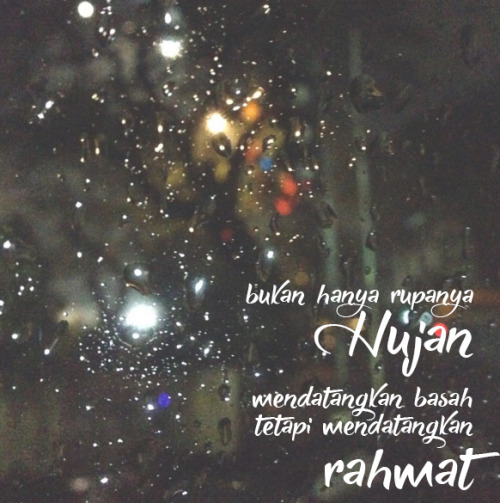 bukan hanya rupanya
Hujan
mendatangkan basah
tetapi mendatangkan
rahmat